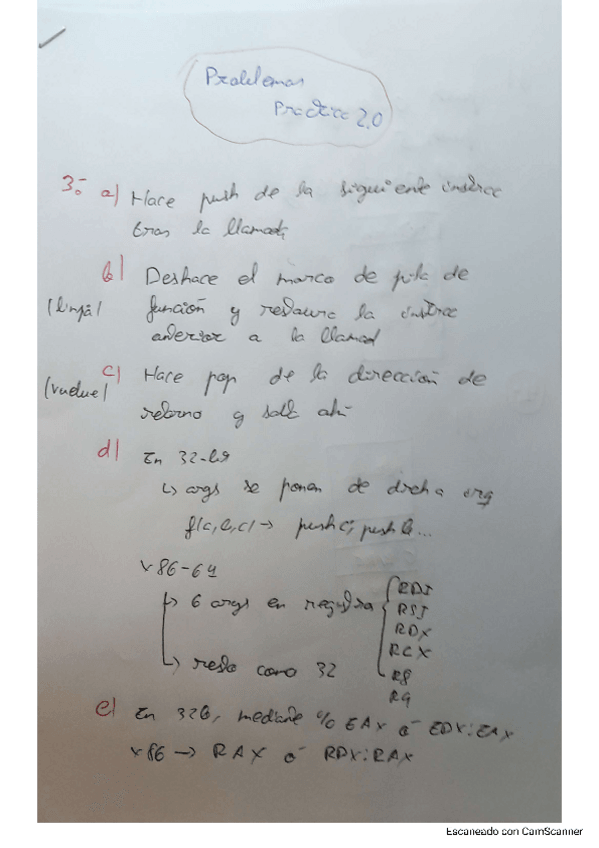 Problemas
Practica 2.0
3.- a) Hace push de la siguiente instrucc
tras la llamada
b) Deshace el marco de pila de
(limpia) función y restaura la instrucc
anterior a la llamad
c) Hace pop de la dirección de
(vuelve) retorno y salta ahí
d) En 32-bit
↳ args se ponen de drcha a izq
f(a,b,c) → push c; push b...
x86-64
↳ 6 args en registros { RDI
RSI
RDX
RCX
R8
R9
↳ resto como 32
e) En 32b, mediante % EAX ó EDX:EAX
x86 → RAX ó RDX:RAX
Escaneado con CamScanner